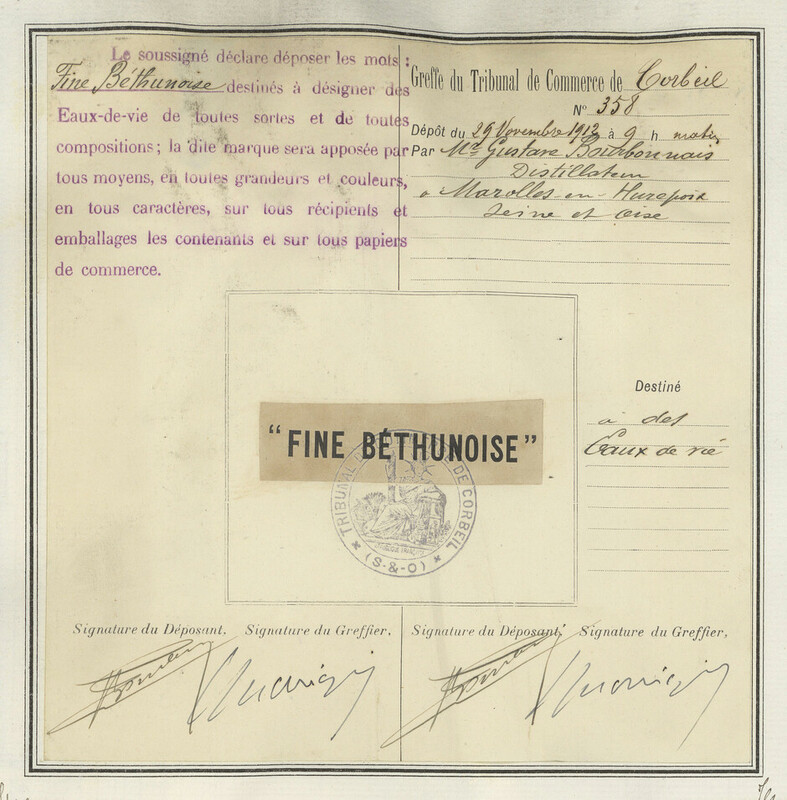 Le soussigné déclare déposer les mots :
Fine Béthunoise destinés à désigner des
Eaux-de-vie de toutes sortes et de toutes
compositions; la dite marque sera apposée par
tous moyens, en toutes grandeurs et couleurs,
en tous caractères, sur tous récipients et
emballages les contenants et sur tous papiers
de commerce.
Greffe du Tribunal de Commerce de Corbeil
N° 358
Dépôt du 29 Novembre 1912 à 9 h matin
Par Mr Gustave Bourbonnais
Distillateur
à Marolles-en-Hurepoix
Seine et Oise
Destiné
à des
Eaux de vie
"FINE BÉTHUNOISE"
TRIBUNAL DE CORBEIL
(S-&-O)
Signature du Déposant. Signature du Greffier.
Signature du Déposant. Signature du Greffier.